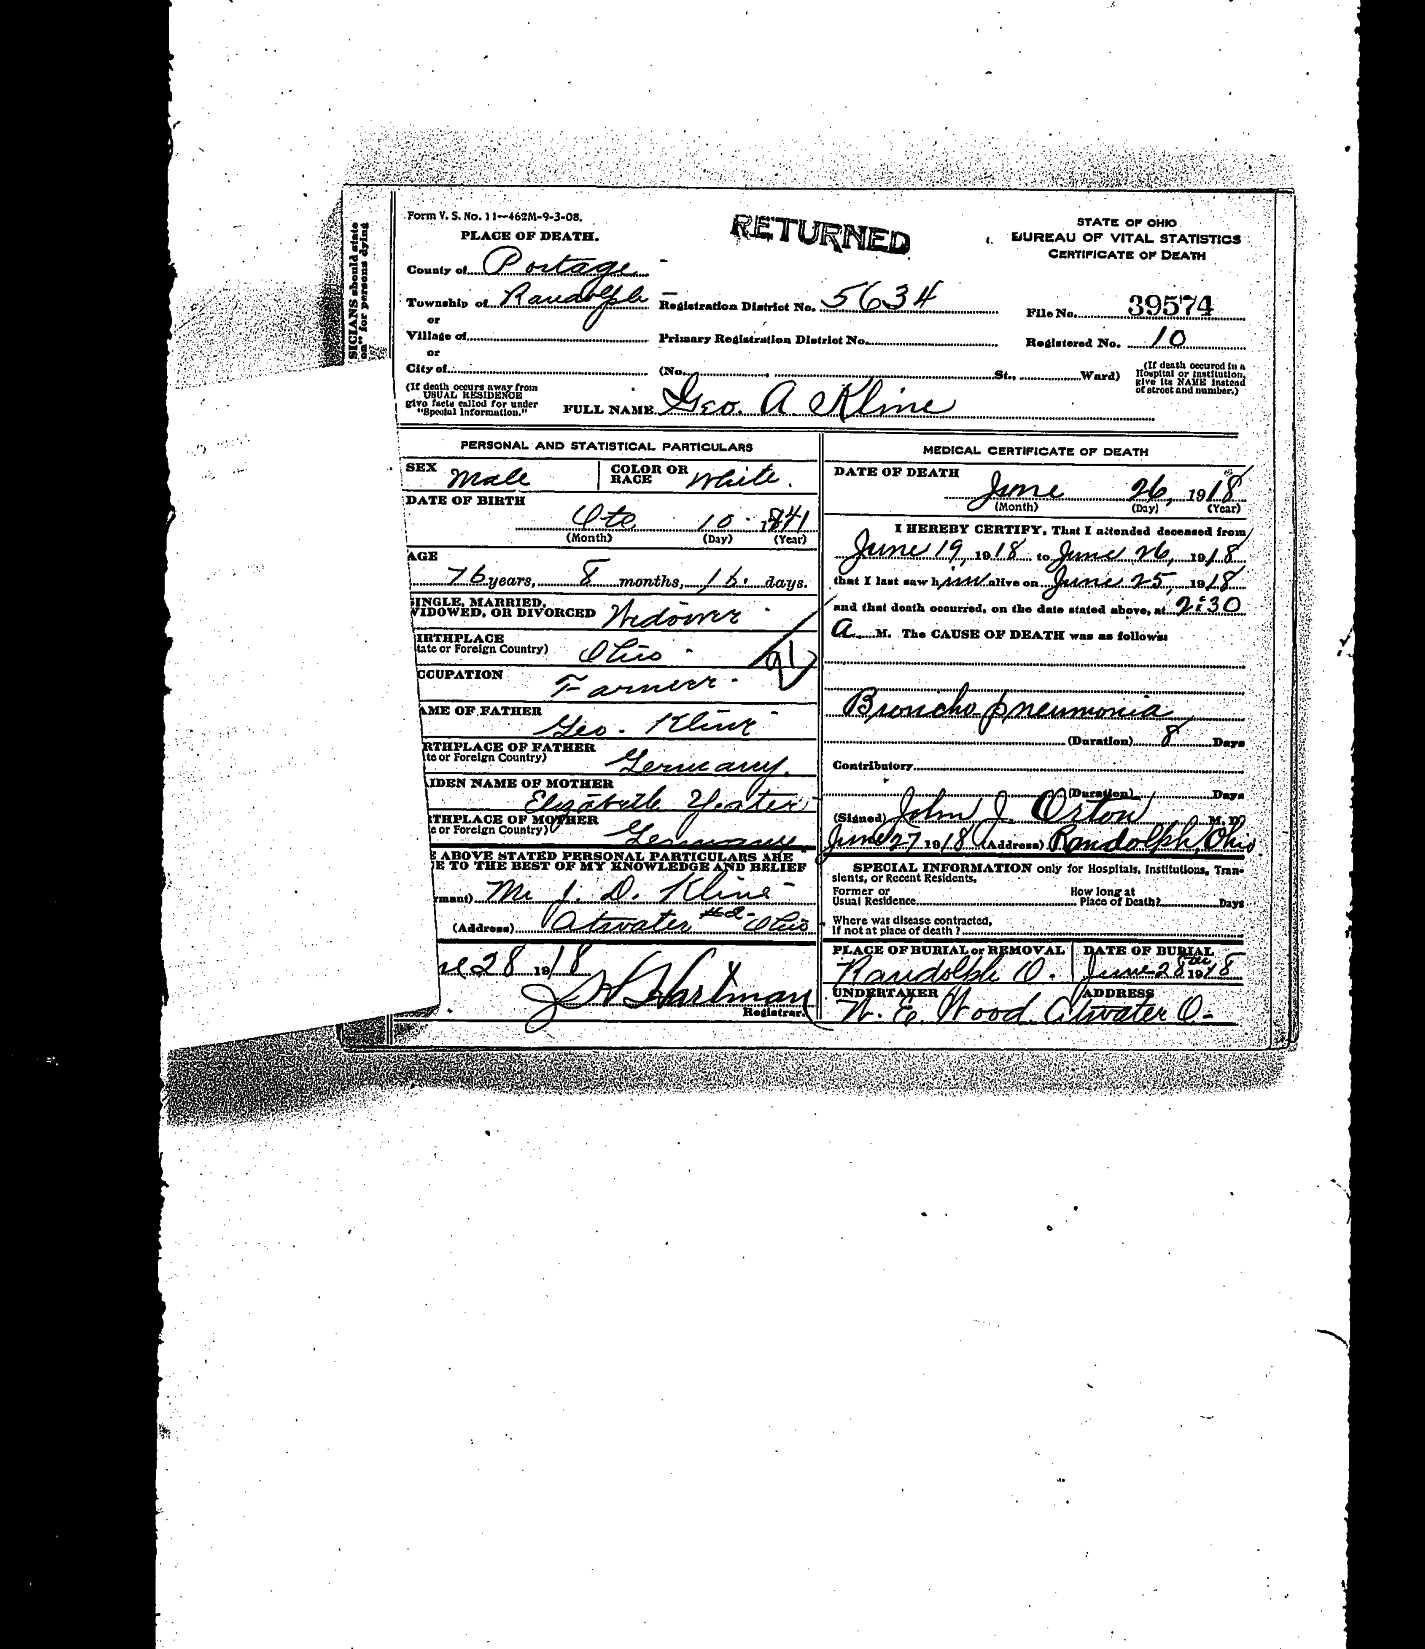 SICIANS should state
on" for persons dying
Form V. S. No. 11—462M-9-3-08.
PLACE OF DEATH.
RETURNED
STATE OF OHIO
BUREAU OF VITAL STATISTICS
CERTIFICATE OF DEATH
County of Portage
Township of Randolph Registration District No. 5634
File No. 39574
or
Village of Primary Registration District No. Registered No. 10
or
City of (No. , St., Ward)
(If death occured in a
Hospital or Institution,
give its NAME instead
of street and number.)
(If death occurs away from
USUAL RESIDENCE
give facts called for under
"Special Information."
FULL NAME Geo. A Kline
PERSONAL AND STATISTICAL PARTICULARS
SEX Male COLOR OR RACE White.
DATE OF BIRTH
Oto 10 1841
(Month) (Day) (Year)
AGE
76 years, 8 months, 16. days.
SINGLE, MARRIED,
WIDOWED, OR DIVORCED Widower
IRTHPLACE
tate or Foreign Country) Ohio
91
CCUPATION
Farmer
AME OF FATHER
Geo. Kline
RTHPLACE OF FATHER
te or Foreign Country) Germany.
IDEN NAME OF MOTHER
Elizabeth
THPLACE OF MOTHER
e or Foreign Country) Germany
E ABOVE STATED PERSONAL PARTICULARS ARE
E TO THE BEST OF MY KNOWLEDGE AND BELIEF
mant) Mr J. D. Kline
(Address) Atwater #2 Ohio
ne 28 1918
Hartman
Registrar.
MEDICAL CERTIFICATE OF DEATH
DATE OF DEATH
June 26, 1918
(Month) (Day) (Year)
I HEREBY CERTIFY, That I attended deceased from
June 19, 1918 to June 26, 1918
that I last saw him alive on June 25, 1918
and that death occurred, on the date stated above, at 2:30
A M. The CAUSE OF DEATH was as follows:
Broncho pneumonia
(Duration) 8 Days
Contributory
(Duration) Days
(Signed) John J. Orton M. D.
June 27 1918 (Address) Randolph, Ohio
SPECIAL INFORMATION only for Hospitals, Institutions, Tran-
sients, or Recent Residents.
Former or
Usual Residence How long at
Place of Death? Days
Where was disease contracted,
If not at place of death?
PLACE OF BURIAL or REMOVAL DATE OF BURIAL
Randolph O. June 28 1918
UNDERTAKER ADDRESS
W. E. Wood. Atwater O.